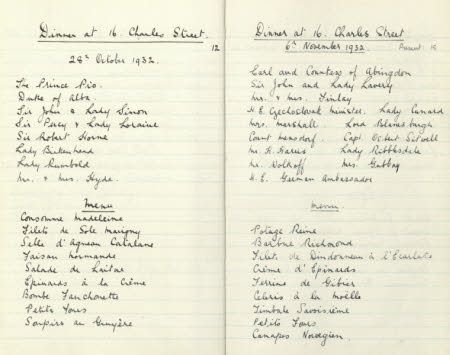 Dinner at 16. Charles Street.
12
28th October 1932.
The Prince Pio.
Duke of Alba.
Sir John & Lady Simon
Sir Percy & Lady Loraine
Sir Robert Horne
Lady Birkenhead
Lady Rumbold
Mr. & Mrs. Hyde.
Menu
Consommé Madeleine
Filets de Sole Marigny
Selle d'Agneau Catalane
Faisan Normande
Salade de Laitue
Epinards à la Crème
Bombe Fanchonette
Petits Fours
Soupirs au Gruyère
Dinner at 16. Charles Street
6th November 1932.
16
Earl and Countess of Abingdon
Sir John and Lady Lavery
Mr. & Mrs. Finlay
H.E. Czechoslovak Minister. Lady Cunard
Mrs. Marshall. Lord Blanesburgh
Count Mensdorf. Capt. Osbert Sitwell
Mr. H. Harris Lady Ribblesdale
Mr. Wolkoff Mrs. Gubbay
H.E. German Ambassador
Menu.
Potage Reine
Barbue Richmond
Filets de Dindonneau à l'Ecarlate
Crème d'Epinards
Terrine de Gibier
Céleris à la Moëlle
Timbale
Petits Fours
Canapes Norvégien.